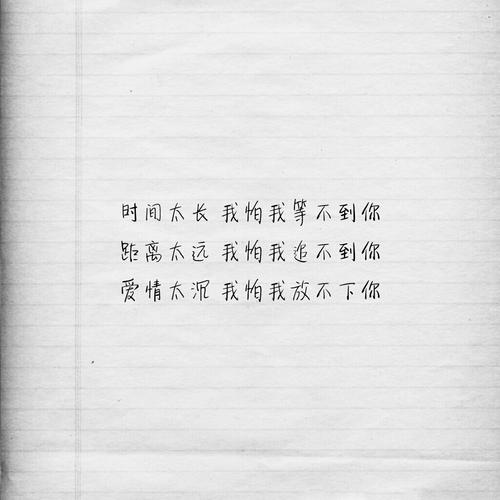 时间太长 我怕我等不到你
距离太远 我怕我追不到你
爱情太沉 我怕我放不下你